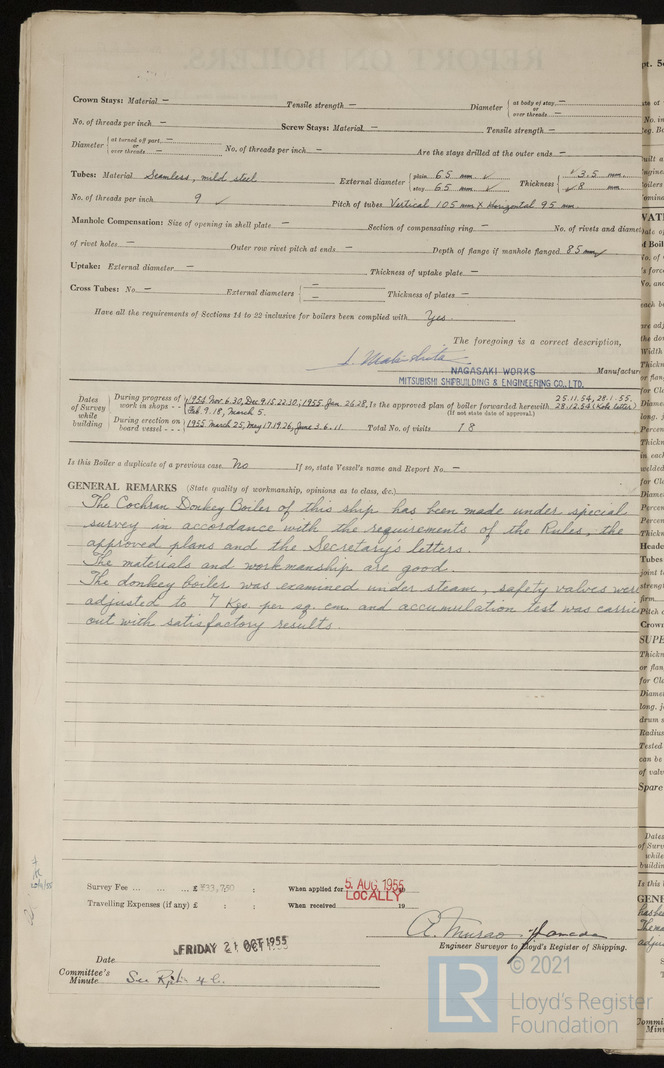 Crown Stays: Material — Tensile strength — Diameter { at body of stay — or over threads —
No. of threads per inch — Screw Stays: Material — Tensile strength —
Diameter { at turned off part — or over threads — No. of threads per inch — Are the stays drilled at the outer ends —
Tubes: Material Seamless, mild steel External diameter { plain 65 mm. ✓ stay 65 mm. ✓ Thickness { ✓ 3.5 mm. ✓ 8 mm.
No. of threads per inch 9 ✓ Pitch of tubes Vertical 105 mm X Horizontal 95 mm.
Manhole Compensation: Size of opening in shell plate — Section of compensating ring — No. of rivets and diamet
of rivet holes — Outer row rivet pitch at ends — Depth of flange if manhole flanged 85 mm
Uptake: External diameter — Thickness of uptake plate —
Cross Tubes: No. — External diameters { — — Thickness of plates —
Have all the requirements of Sections 14 to 22 inclusive for boilers been complied with Yes.
The foregoing is a correct description,
NAGASAKI WORKS Manufactur
MITSUBISHI SHIPBUILDING & ENGINEERING CO., LTD.
Dates of Survey while building
During progress of work in shops - - { 1954 Nov. 6. 30, Dec. 9. 15. 22. 30; 1955 Jan. 26. 28, Feb. 9. 18, March 5. Is the approved plan of boiler forwarded herewith 25.11.54, 28.1.55, 28.12.54 (Kobe letter)
(If not state date of approval.)
During erection on board vessel - - - { 1955 March 25, May 17. 19. 26, June 3. 6. 11. Total No. of visits 18
Is this Boiler a duplicate of a previous case. No If so, state Vessel's name and Report No. —
GENERAL REMARKS (State quality of workmanship, opinions as to class, &c.)
The Cochran Donkey Boiler of this ship has been made under special
survey in accordance with the requirements of the Rules, the
approved plans and the Secretary's letters.
The materials and workmanship are good.
The donkey boiler was examined under steam, safety valves were
adjusted to 7 Kgs. per sq. cm. and accumulation test was carrie
out with satisfactory results.
Survey Fee ... ... ... £ : : When applied for 5. AUG. 1955
LOCALLY
Travelling Expenses (if any) £ : : When received 19
Engineer Surveyor to Lloyd's Register of Shipping.
Date FRIDAY 21 OCT 1955
Committee's Minute See Rpt. 4c.
© 2021
LR
Lloyd's Register
Foundation